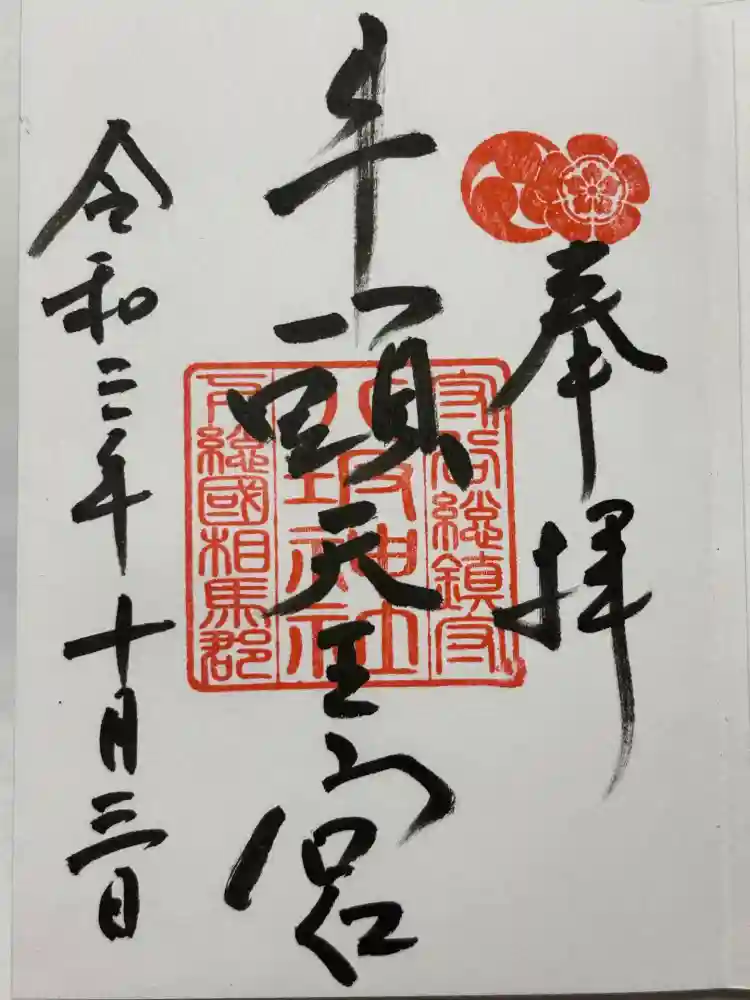 奉拝
牛頭天王宮
守谷総鎮守
八坂神社
下総國相馬郡
令和二年十月三日